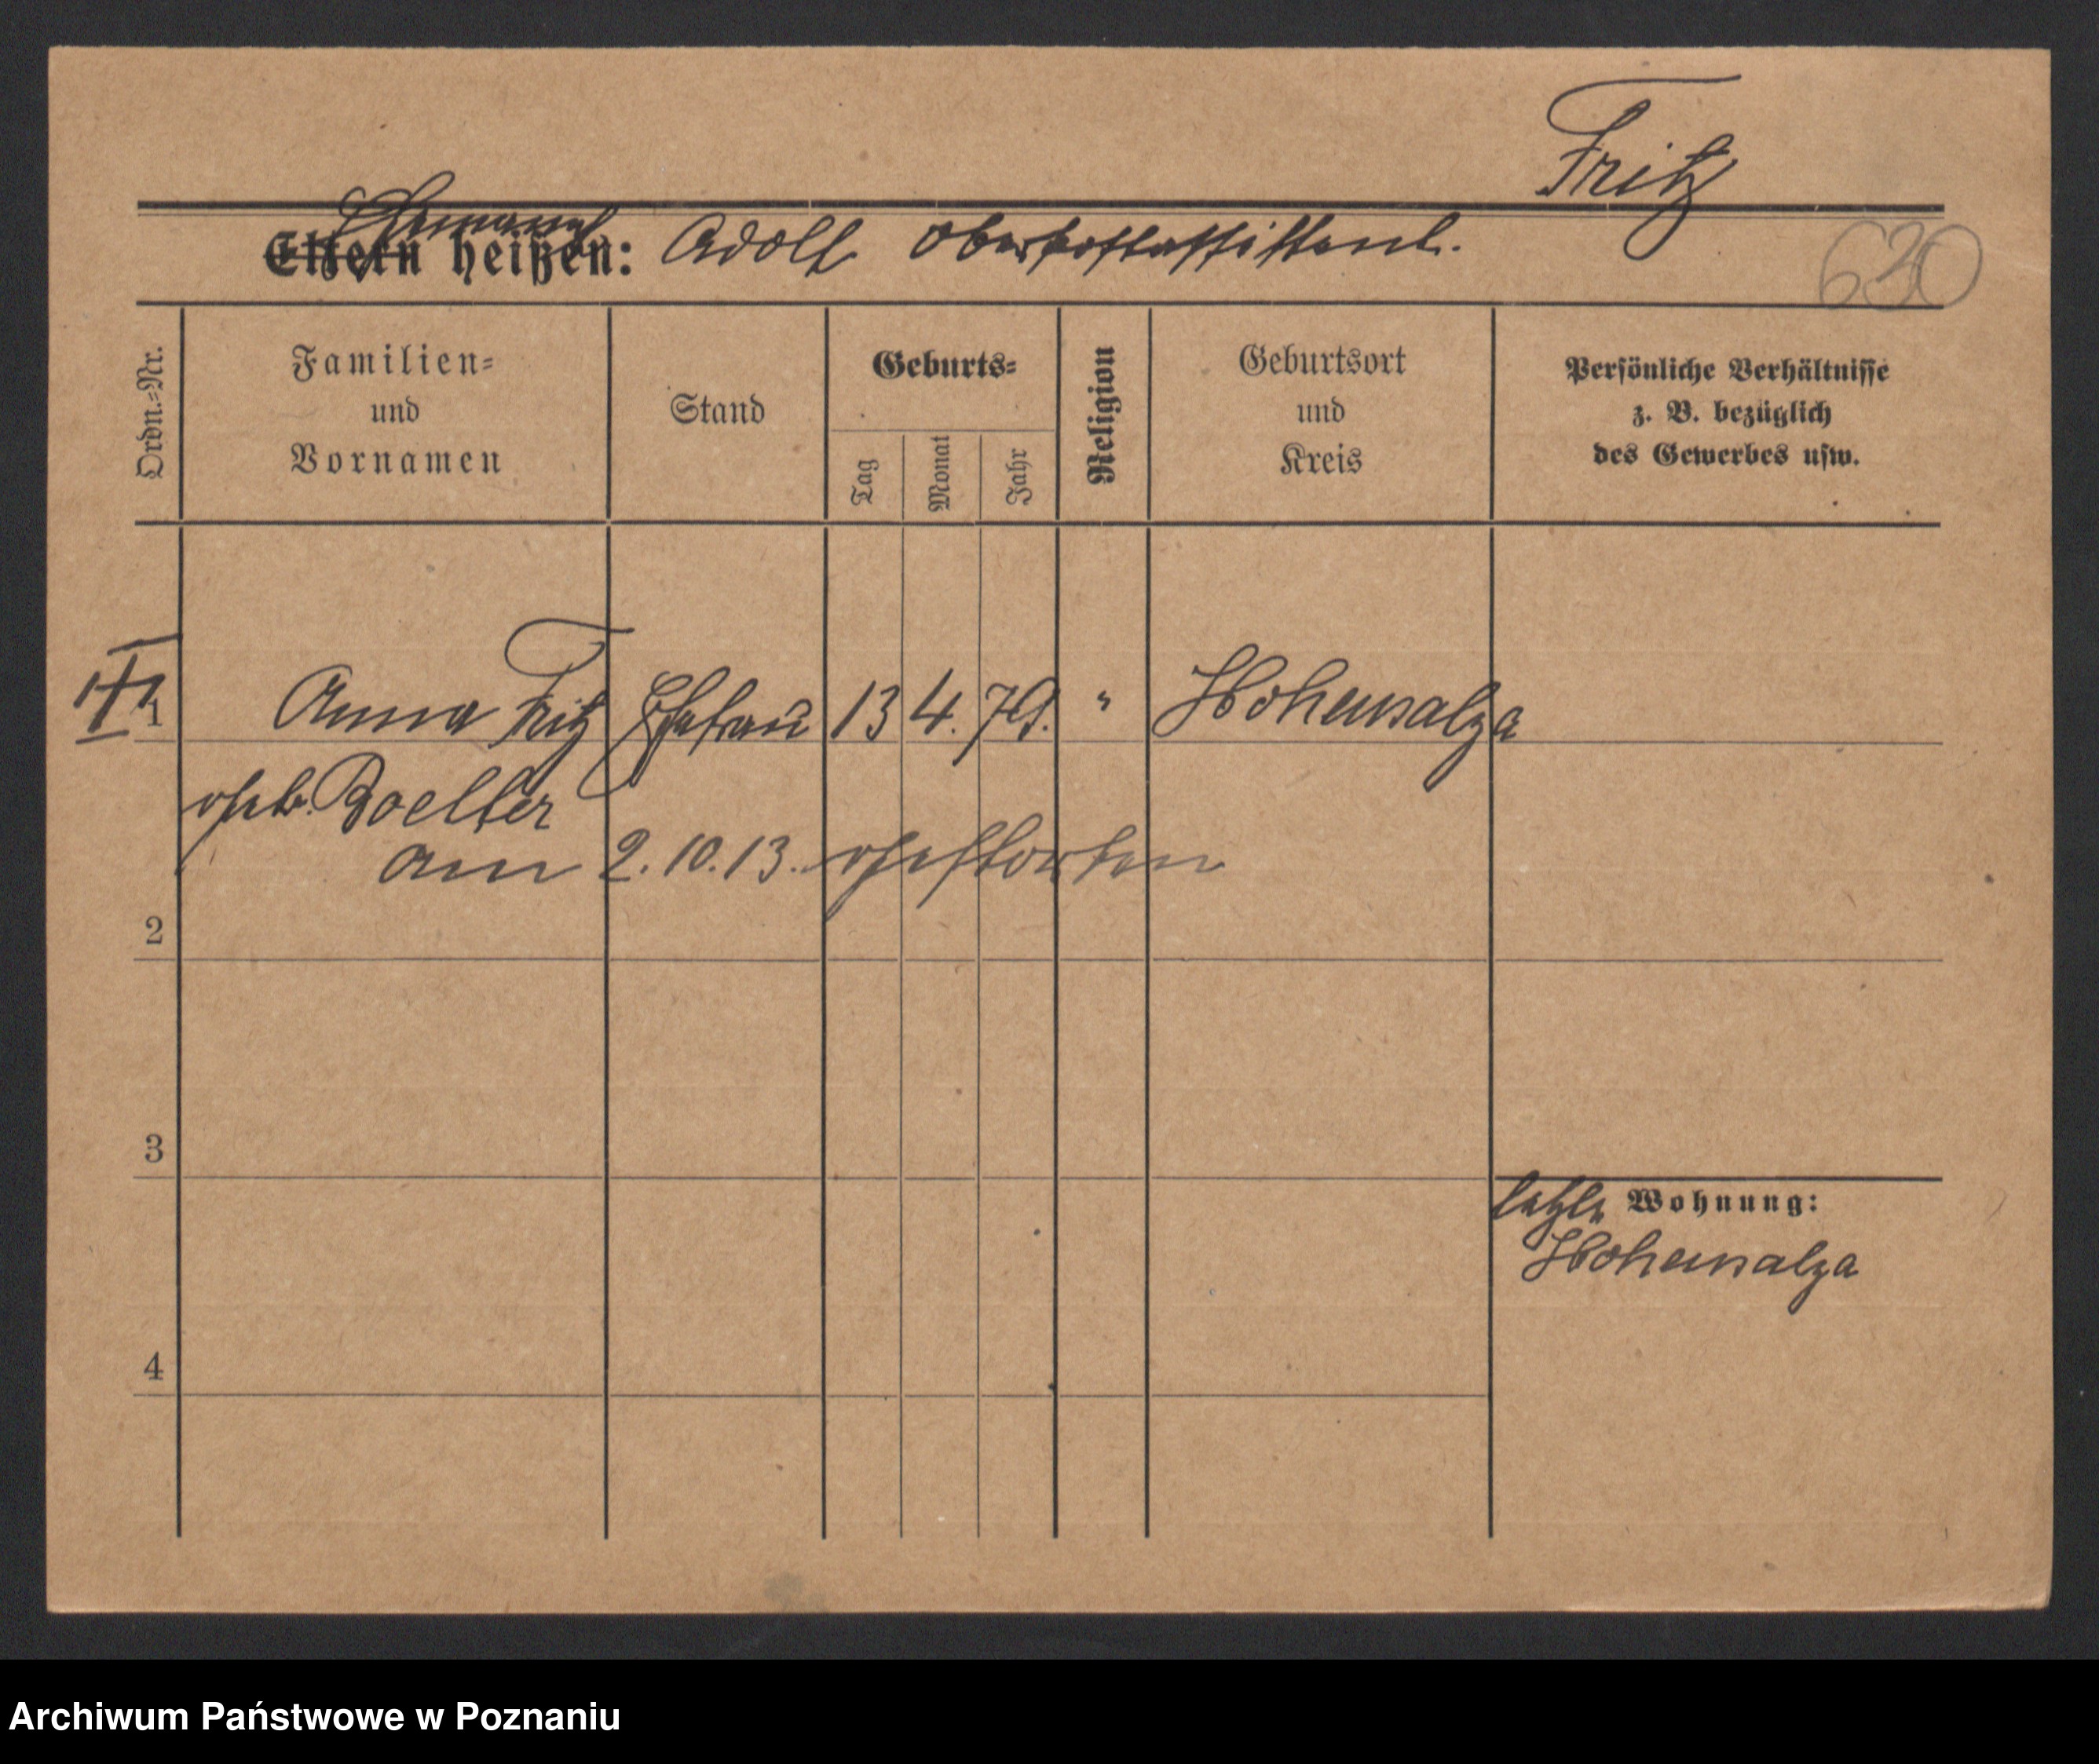 Fritz
Ehemann
Eltern heißen: Adolf Oberpostassistent.
630
Ordn.-Nr.
Familien-
und
Vornamen
Stand
Geburts-
Tag
Monat
Jahr
Religion
Geburtsort
und
Kreis
Persönliche Verhältnisse
z. B. bezüglich
des Gewerbes usw.
1 Anna Fritz Ehefrau 13 4. 79. " Hohensalza
geb.
am 2.10.13. gestorben
2
3
letzte Wohnung:
Hohensalza
4
Archiwum Państwowe w Poznaniu